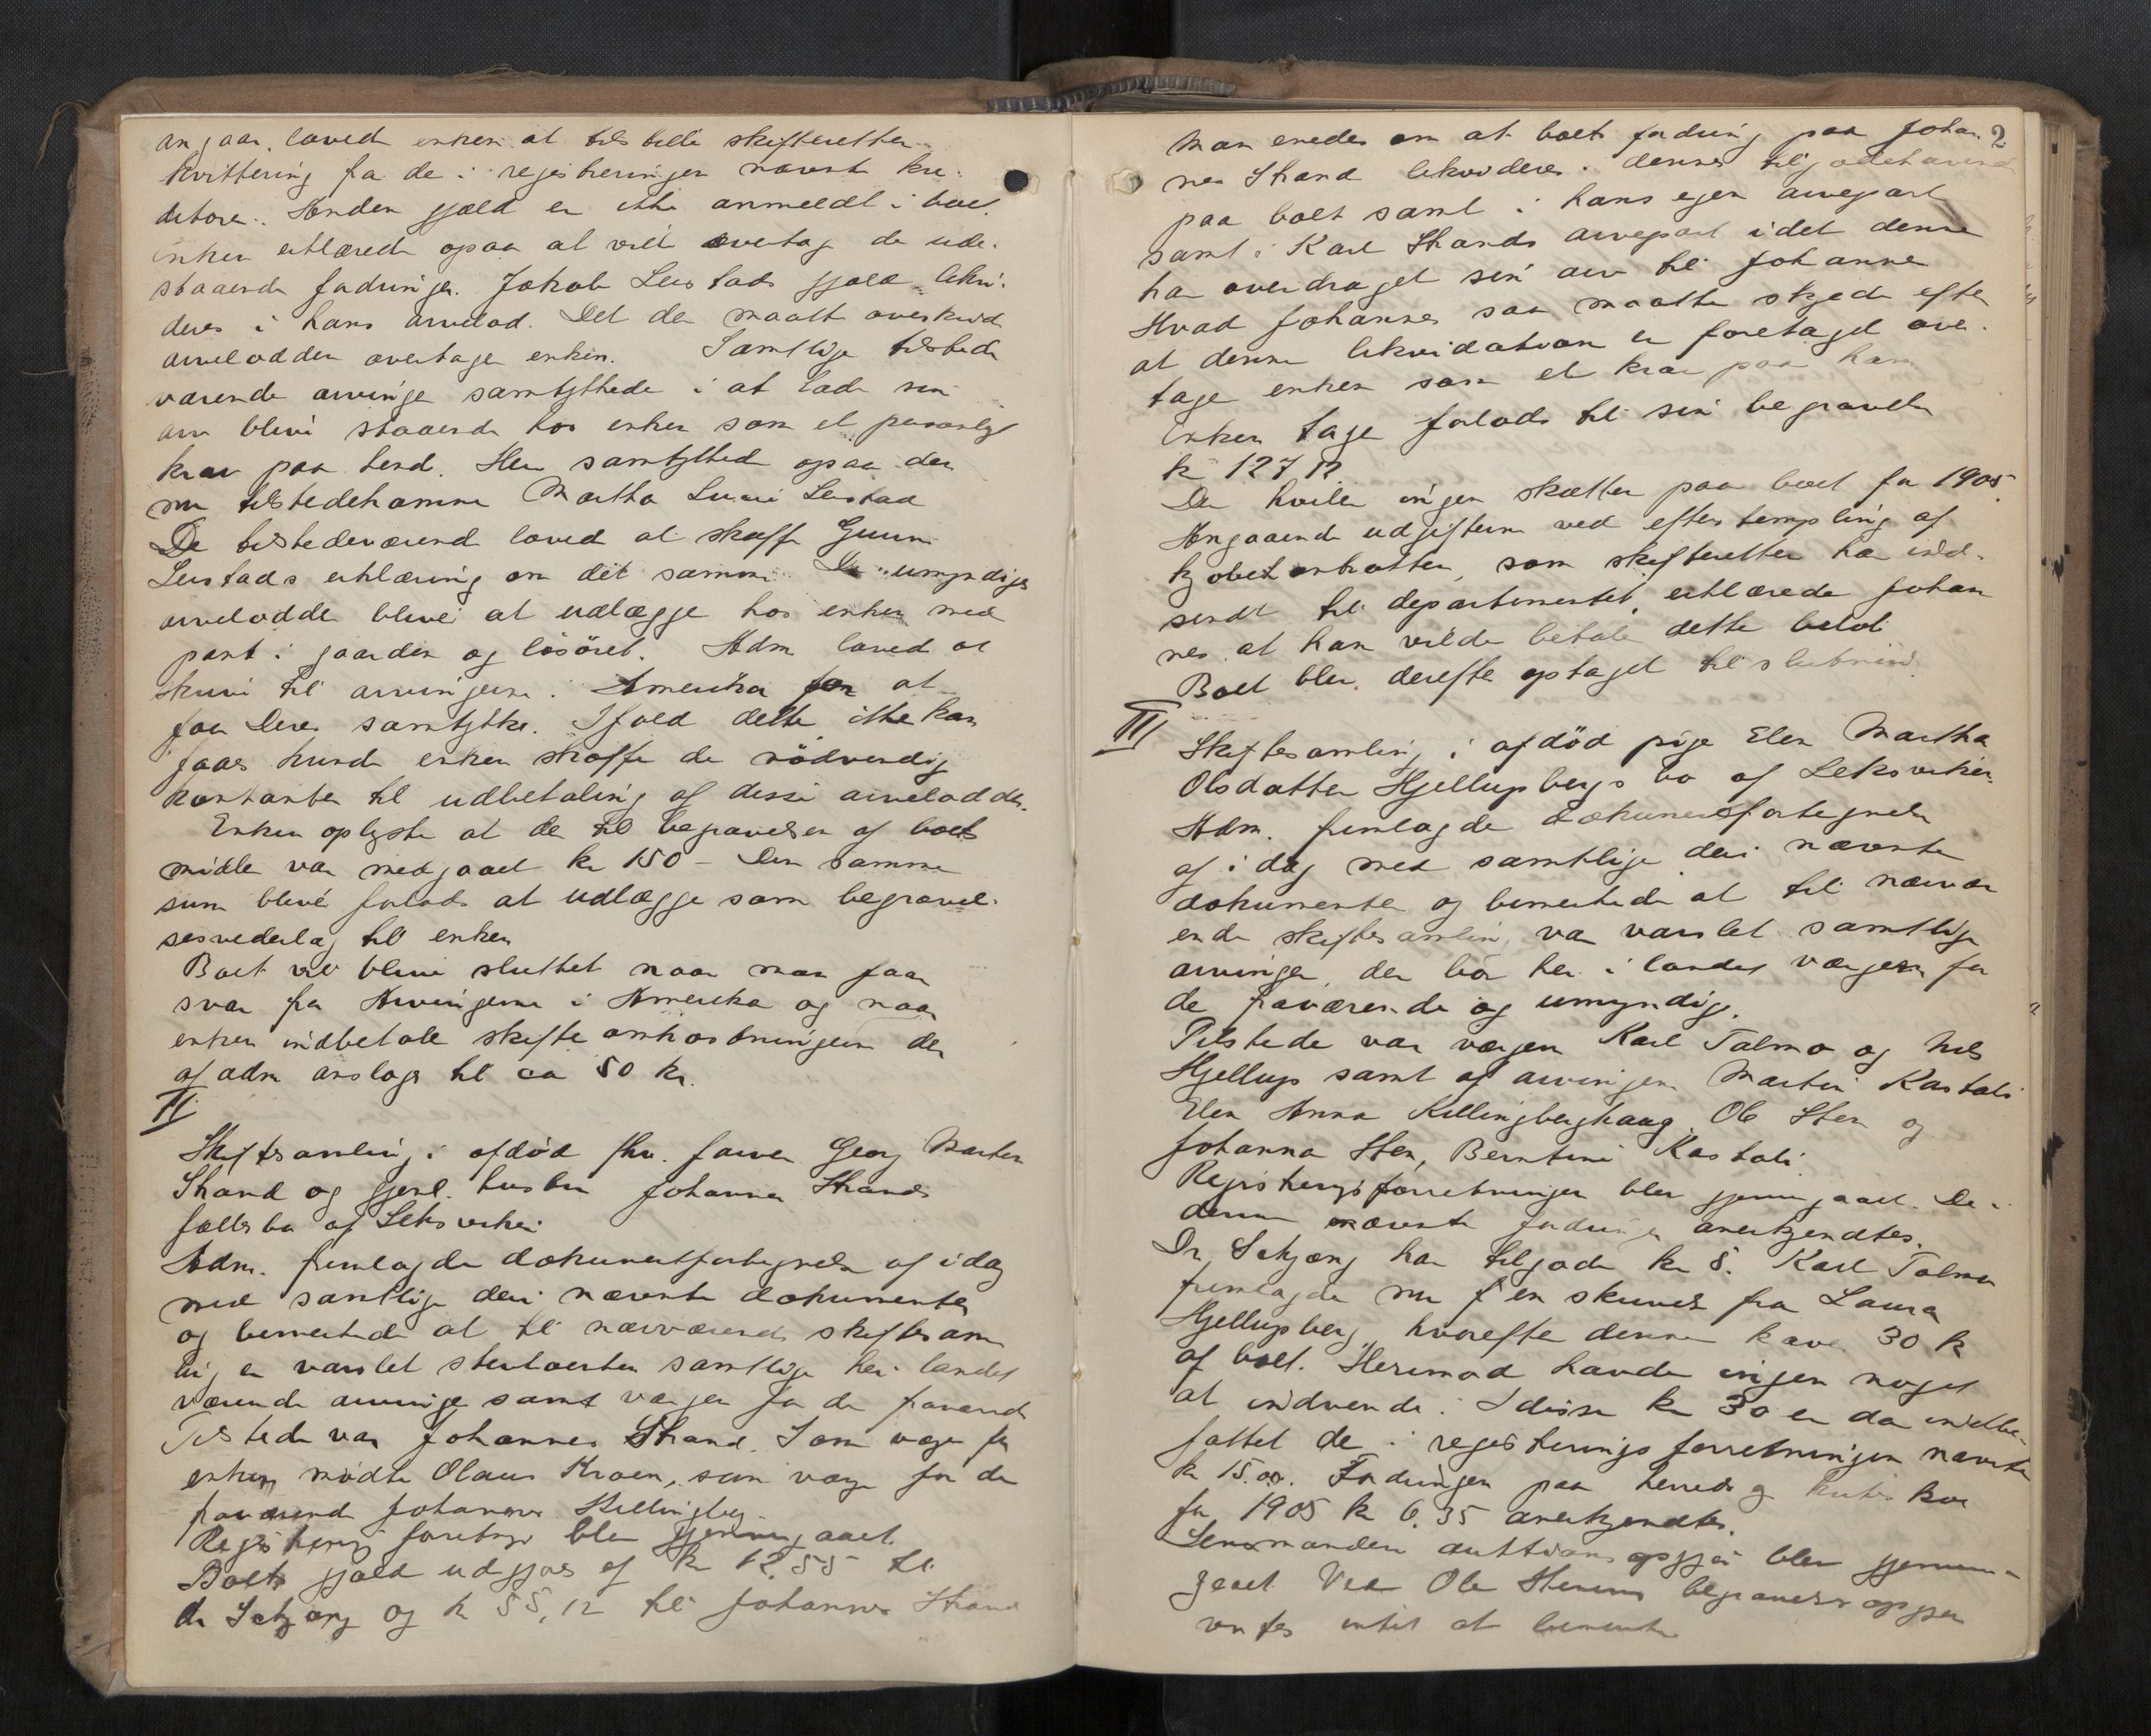 angaar, loved enken at tilstille skifteretten
kvittering fra de i registreringen nævnte kre-
ditorer. Anden gjæld er ikke anmeldt i boet.
Enken erklærede ogsaa at ville overtage de ude-
staaende fordringer. Jakob Leistads gjæld likvi-
deres i hans arvelod. Det der maatte overskride
arvelodden overtager enken. Samtlige tilstede
værende arvinge samtykkede i at lade sin
arv blive staaende hos enken som et personligt
krav paa hend. Heri samtykked ogsaa den
nu tilstedekomne Martha Leistad
De tilstedeværende loved at skaffe
Leistads erklæring om det samme. De umyndiges
arvelodde blive at udlægge hos enken med
pant i gaarden og lösöret. Adm loved at
skrive til arvingerne i Amerika for at
faa deres samtykke. Ifald dette ikke kan
faaes kunde enken skaffe de nödvendige
kontanter til udbetaling af disse arvelodder.
Enken oplyste at der til begravelsen af boets
midler var medgaaet kr 150 - Den samme
sum blive forlods at udlægge som begravel-
sesvederlag til enken
Boet vil blive sluttet naar man faar
svar fra Arvingerne i Amerika og naar
enken indbetaler skifteomkostningerne der
af adm anslages til ca 50 kr.
II
Skiftesamling i afdød fhv. farver Georg Morten
Strand og gjenl. hustru Johanna Strands
fællesbo af Leksviken
Adm. fremlagde dokumentfortegnelse af idag
med samtlige deri nævnte dokumenter
og bemerkede at til nærværende skiftesam
ling er varslet samtlige her i landet
værende arvinge samt værger for de fraværende
Tilstede var Johannes Strand. Som værge for
enken mødte Olaus Kroen, som værge for de
fraværende Johannes Killingberg.
Registreringsforretn. blev gjennemgaaet.
Boets gjæld udgjøres af kr 12.55 til
dr Setzang og kr 55,12 til Johannes Strand
2
Man enedes om at boets fordring paa Johan
nes Strand likvideres i dennes tilgodehavende
paa boet samt i hans egen arvepart
samt i Karl Strands arvepart idet denne
har overdraget sin arv til Johannes
Hvad Johannes saa maatte skylde efter
at denne likvidation er foretaget over-
tager enken som et krav paa ham
Enken tager forlods til sin begravelse
kr 127,12
Der hviler ingen skatter paa boet for 1905.
Angaaende udgifterne ved efterstempling af
kjøbekontrakten, som skifteretten har ind-
sendt til departementet, erklærede Johan
nes at han vilde betale dette beløb
Boet blev derefter optaget til slutning.
III
Skiftesamling i afdöd pige Elen Martha
Olsdatter Hjellupbergs bo af Leksviken
Adm. fremlagde dokumentfortegnelse
af idag med samtlige deri nævnte
dokumenter og bemerkede at til nærvær
ende skiftesamling var varslet samtlige
arvinger, der bor her i landet værgerne for
de fraværende og umyndige.
Tilstede var værgerne Karl Talmo og Nils
Hjellup samt af arvingerne Martin Kastali
Elen Anna Killingberghaug, Ole Sten og
Johanna Sten, Berntine Kastali.
Registreringsforretningen blev gjennemgaaet. De i
denne nævnte fordringer anerkjendtes.
Dr. Setzang har tilgode kr 8. Karl Talmo
fremlagde nu en skrivelse fra Laura
Hjellupberg, hvorefter denne kræver 30 kr
af boet. Herimod havde ingen noget
at indvende. I disse kr 30 er da indbe-
fattet de i registreringsforretningen nævnte
kr 15.00. Fordringen paa herreds og
for 1905 kr 6.35 anerkjendtes.
Lensmandens auktionsopgjør blev gjennem-
gaaet. Ved Ole Stenens begravelsesopgjør
intet at bemerke